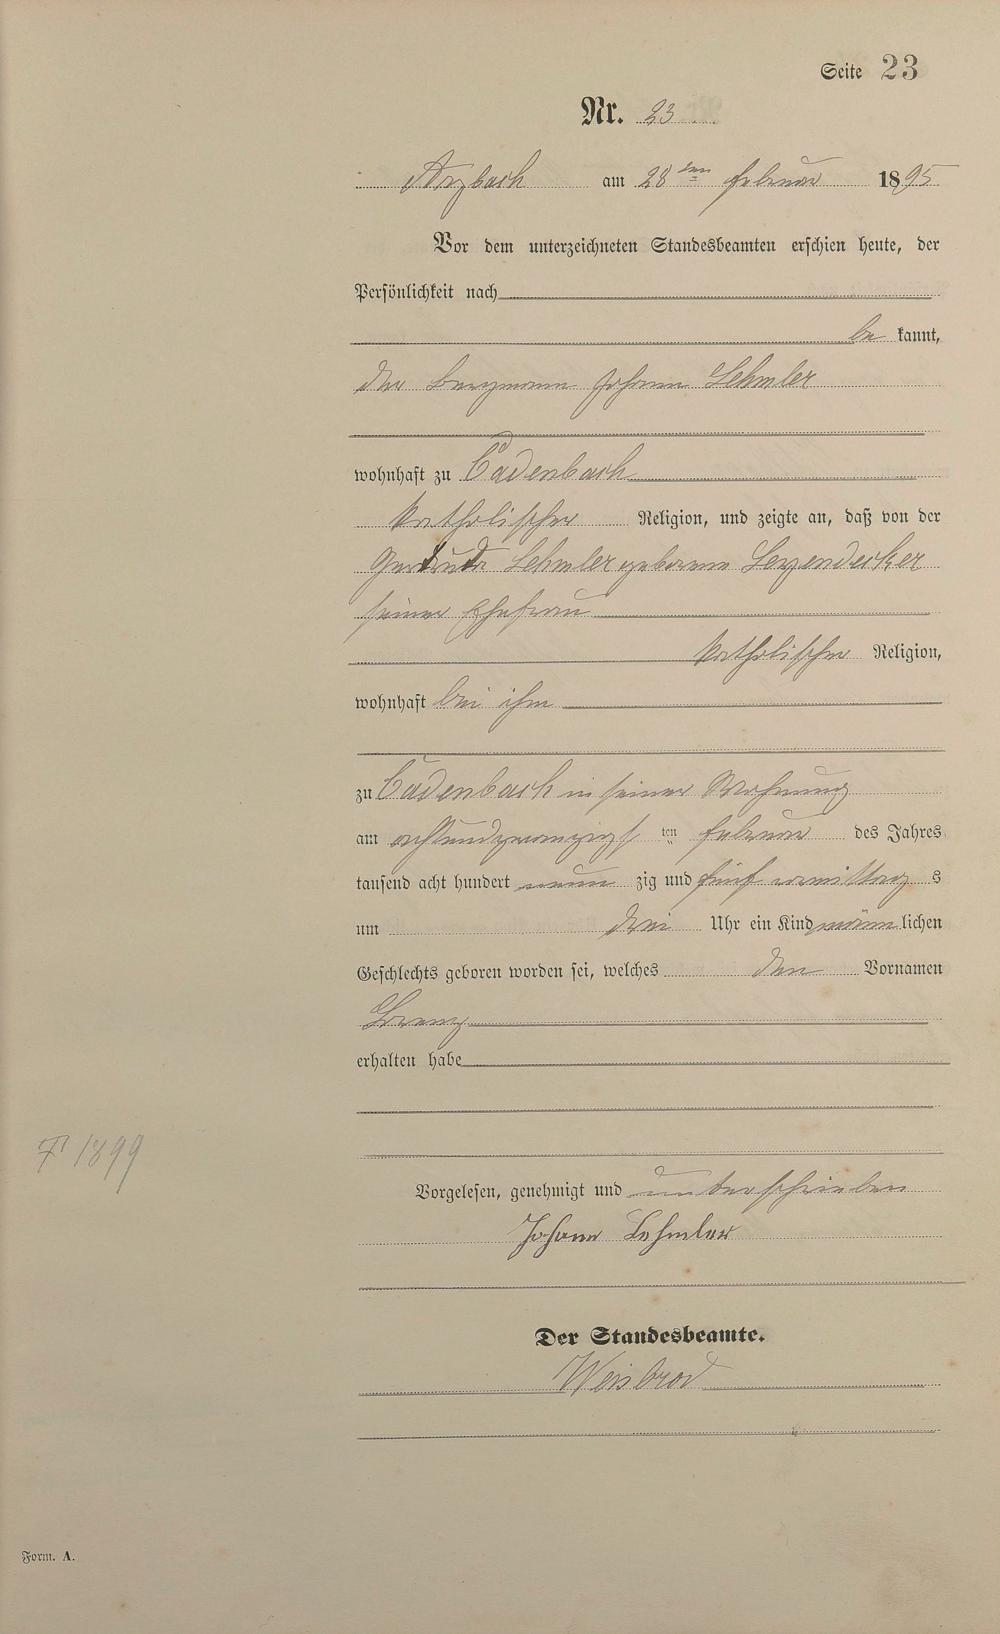 Seite 23
Nr. 23
Arzbach am 28 ten Februar 1895
Vor dem unterzeichneten Standesbeamten erschien heute, der
Persönlichkeit nach
be kannt,
der Bergmann Johann Lehmler
wohnhaft zu Cadenbach
katholischer Religion, und zeigte an, daß von der
Gertruda Lehmler geborene Leyendecker
seiner Ehefrau
katholischer Religion,
wohnhaft bei ihm
zu Cadenbach in seiner Wohnung
am achtundzwanzigsten Februar des Jahres
tausend acht hundert neun zig und fünf vormittag s
um drei Uhr ein Kind männlichen
Geschlechts geboren worden sei, welches den Vornamen
Lorenz
erhalten habe
† 1899
Vorgelesen, genehmigt und unterschrieben
Johann Lehmler
Der Standesbeamte.
Weisbrod
Form. A.